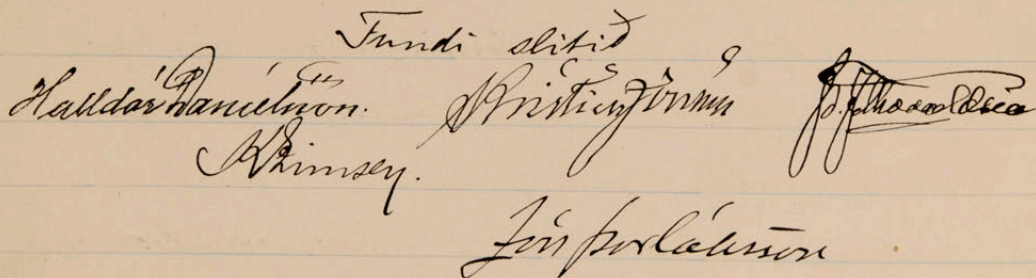 Fundi slitið
Halldór Daníelsson. Kristján Jónsson
K Zimsen.
Jón Þorláksson